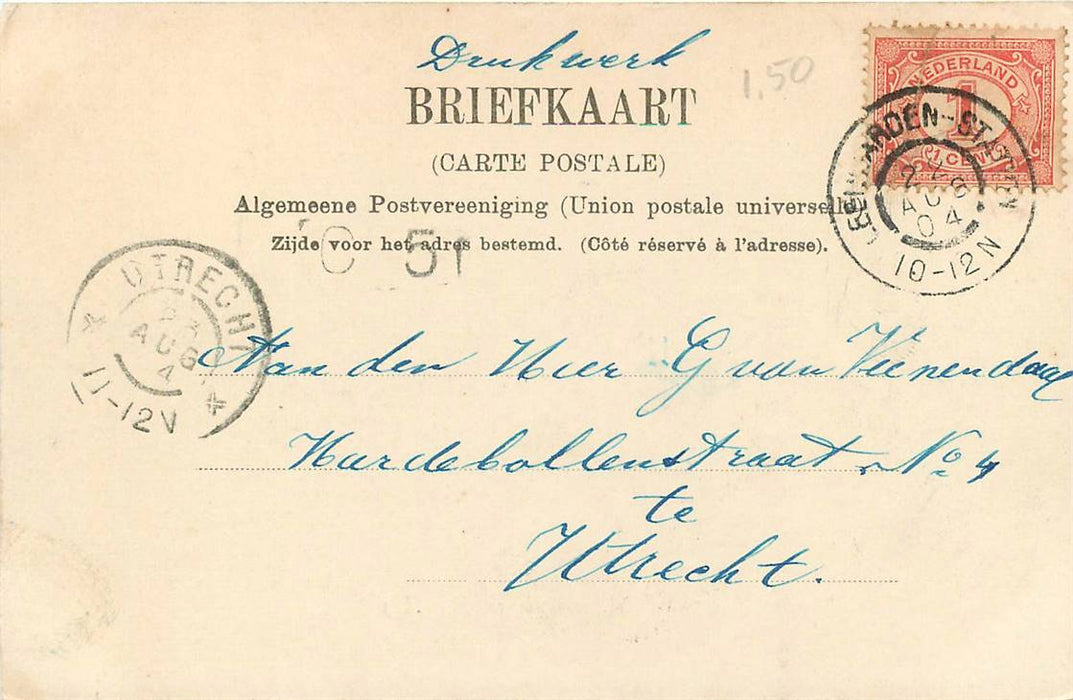 Drukwerk
1.50
BRIEFKAART
(CARTE POSTALE)
Algemeene Postvereeniging (Union postale universelle)
Zijde voor het adres bestemd. (Côté réservé à l'adresse).
NEDERLAND
1
1 CENT
LEEUWARDEN-STATION
22
AUG
04
10-12N
C 51
UTRECHT
23
AUG
4
11-12V
Aan den Heer G van Veenendaal
Hardebollenstraat No 4
te
Utrecht.